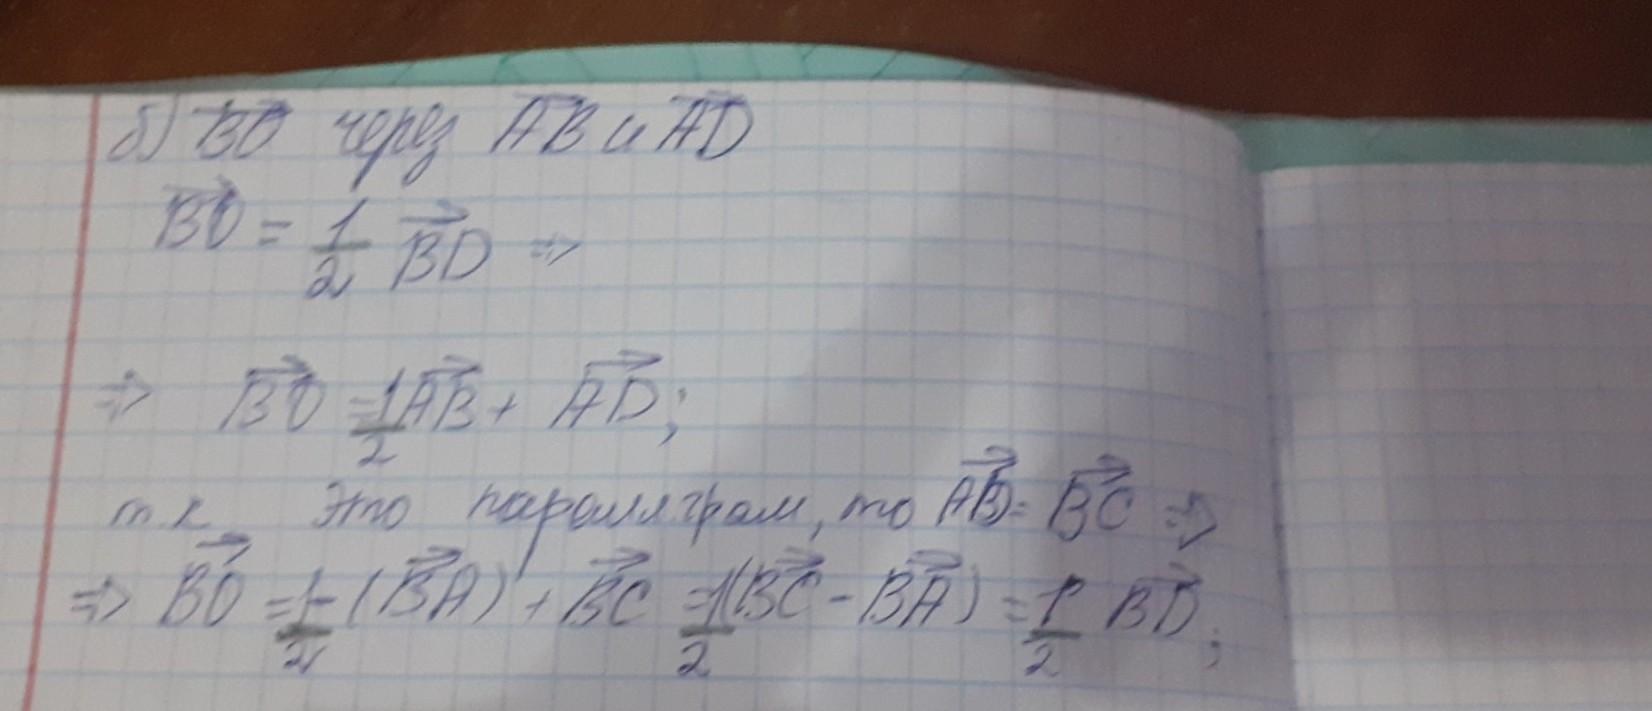 б) BO через AB и AD
BO = 1/2 BD =>
=> BO = 1/2 AB + AD;
т.к. это параллграм, то AD = BC =>
=> BO = 1/2 - (BA) + BC = 1/2 (BC - BA) = 1/2 BD;